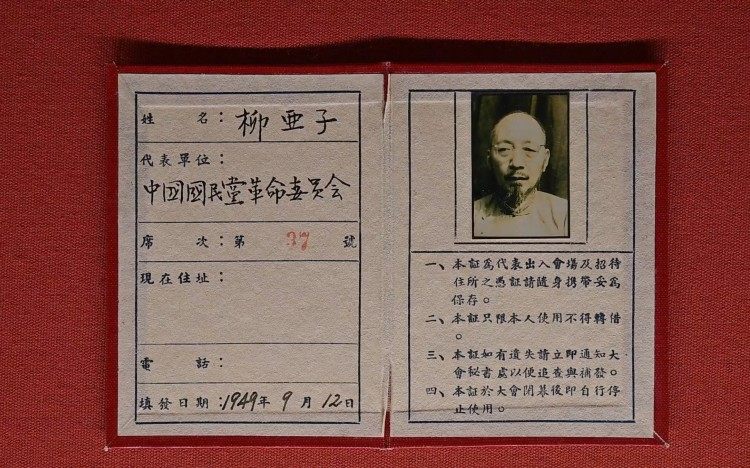 姓 名：柳亜子
代表單位：
中國國民党革命委员会
席 次：第 37 號
現在住址：
電 話：
填發日期：1949年9月12日
一、本証爲代表出入會場及招待
住所之憑証請隨身携帶妥爲
保存。
二、本証只限本人使用不得轉借
。
三、本証如有遺失請立即通知大
會秘書處以便追查與補發。
四、本証於大會閉幕後即自行停
止使用。